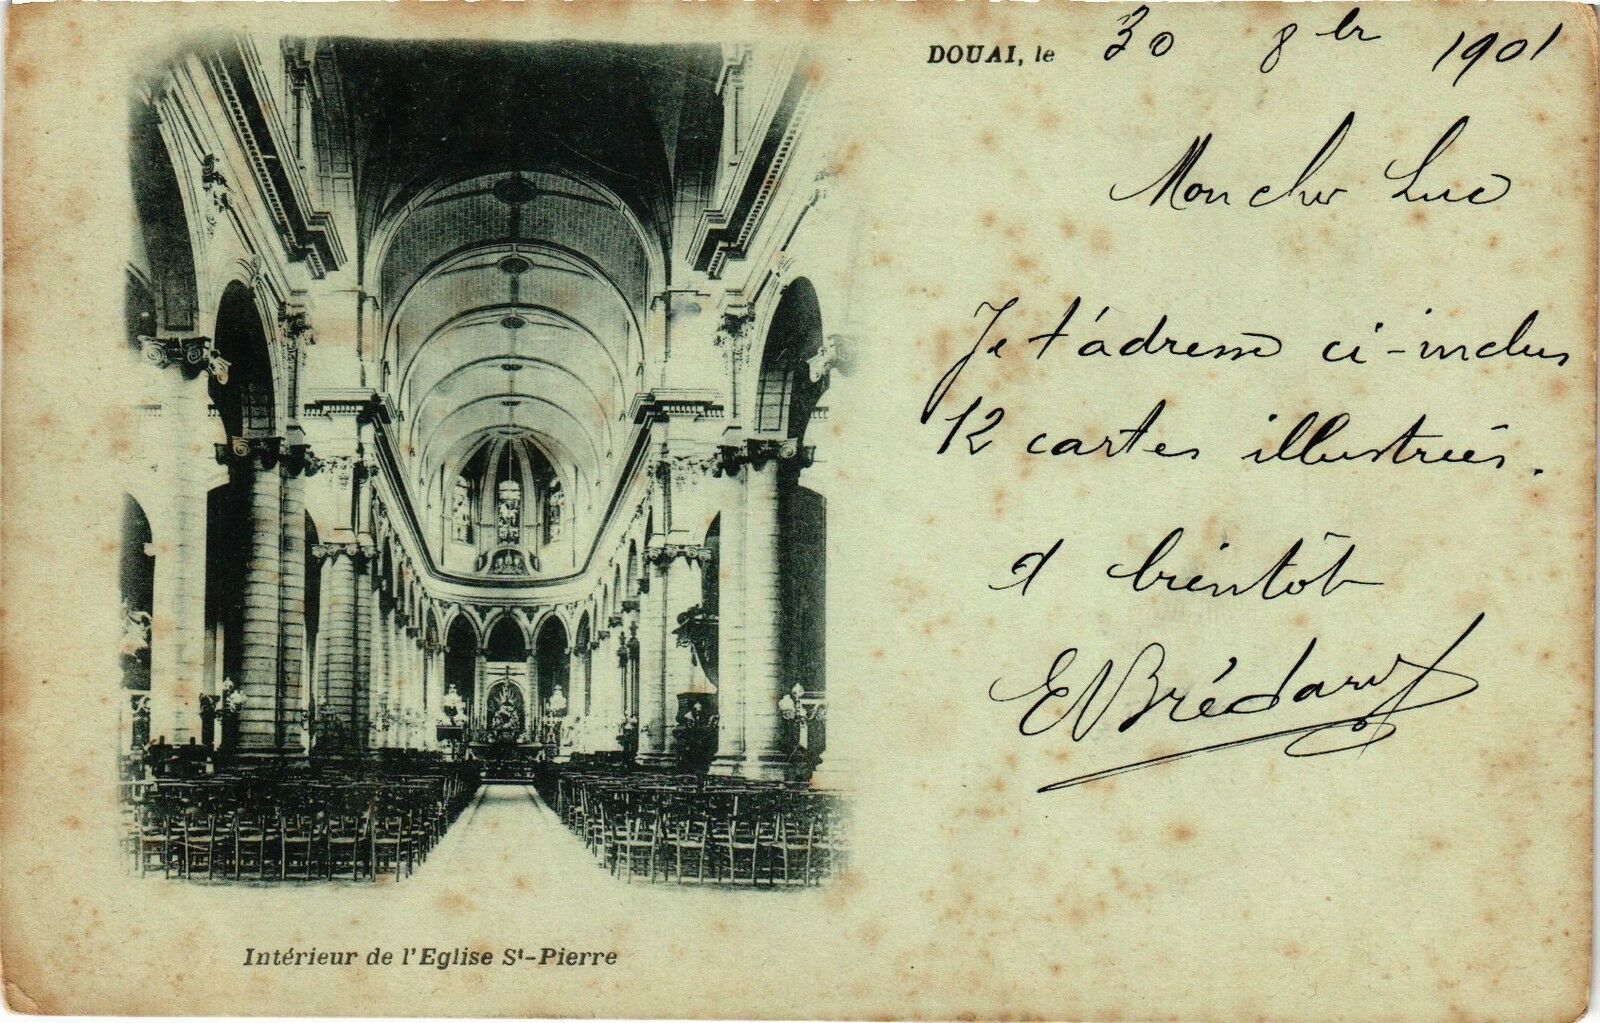 DOUAI, le 30 8bre 1901
Mon cher Luc
Je t'adresse ci-inclus
12 cartes illustrées.
A bientôt
Intérieur de l'Eglise St-Pierre